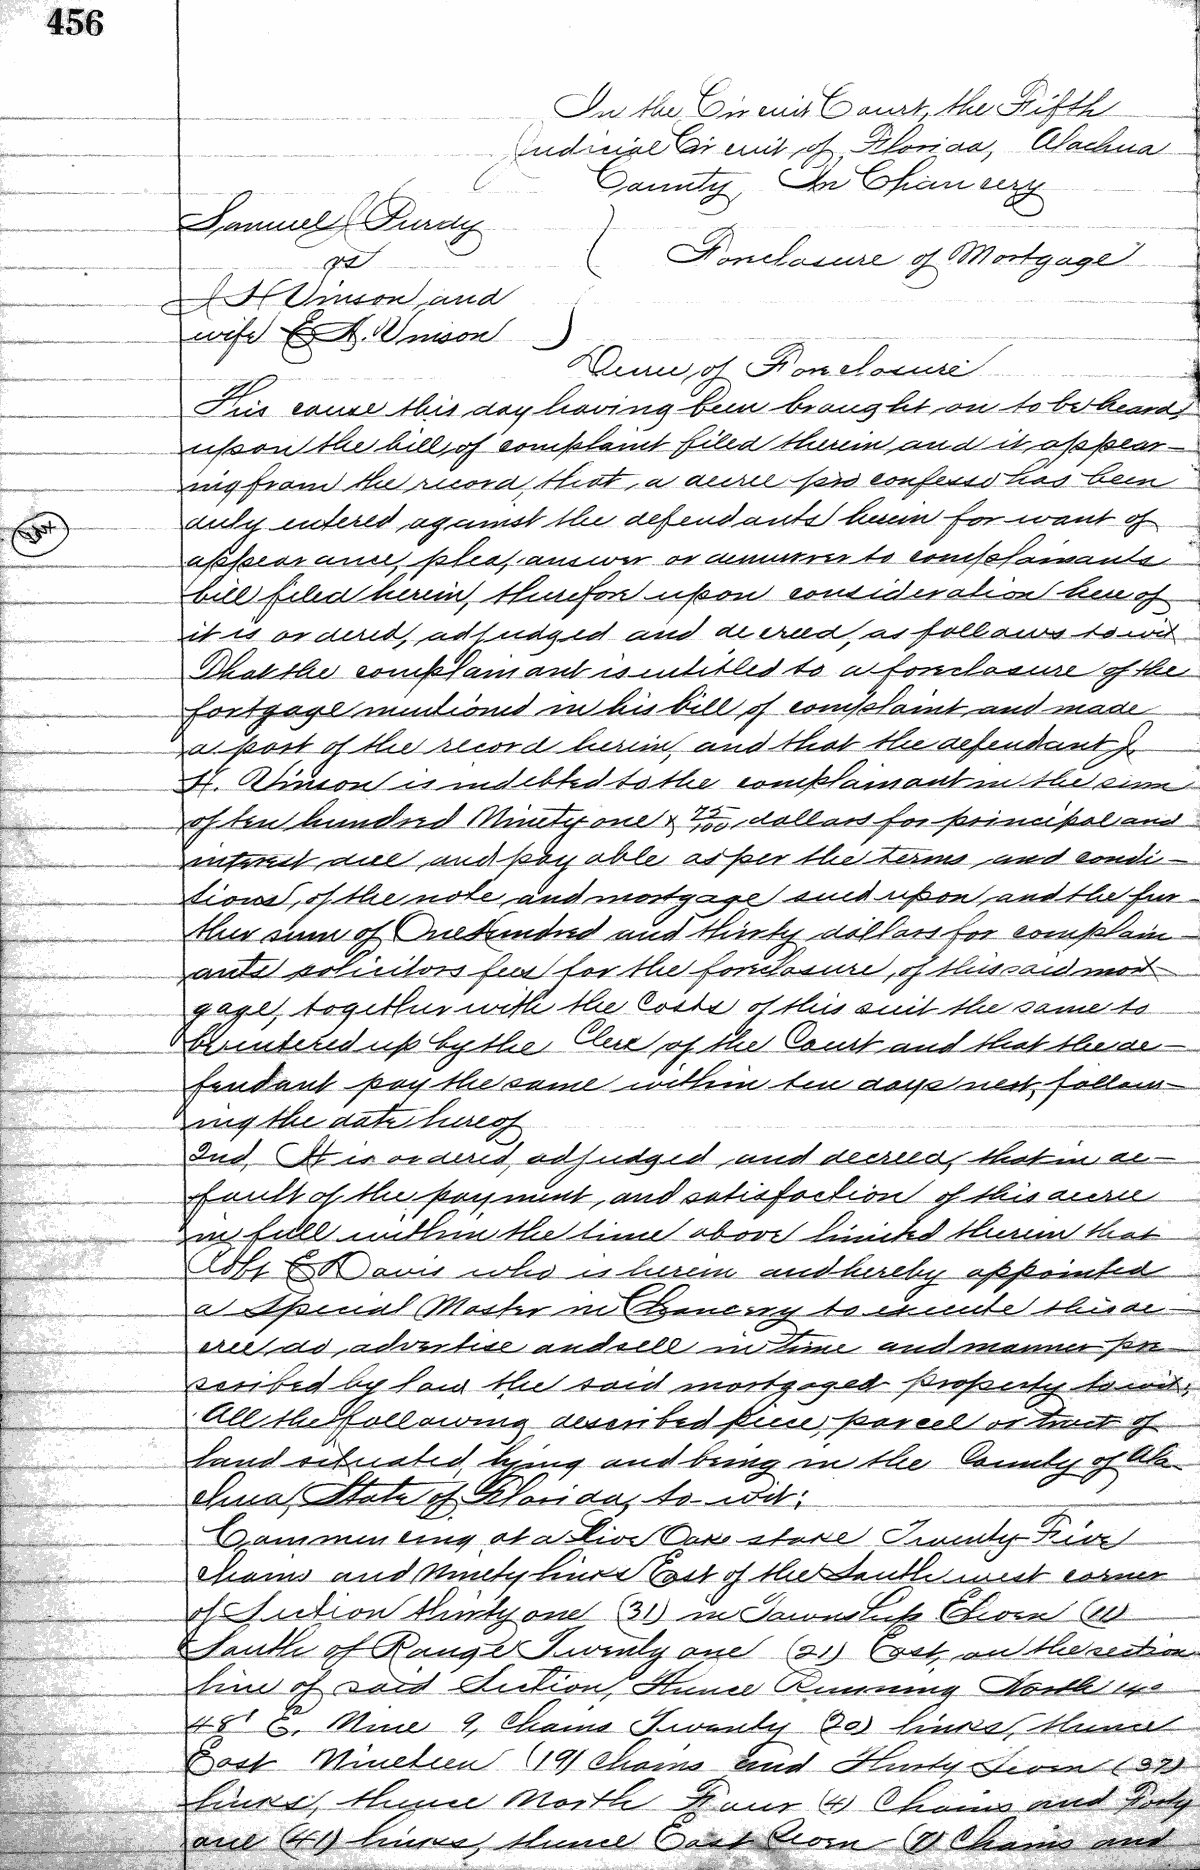 456
In the Circuit Court, the Fifth
Judicial Circuit of Florida, Alachua
County, In Chancery
Samuel J Purdy
vs
Foreclosure of Mortgage
J H Vinson and
wife E A. Vinson
Decree of Foreclosure
This cause this day having been brought on to be heard,
upon the bill of complaint filed therein and it appear-
ing from the record, that a decree pro confesso has been
duly entered against the defendants herein for want of
appearance, plea, answer or demurrer to complainants
bill filed herein, therefore upon consideration hereof
it is ordered, adjudged and decreed, as follows to wit
That the complainant is entitled to a foreclosure of the
fortgage mentioned in his bill of complaint and made
a part of the record herein, and that the defendant J.
H. Vinson is indebted to the complainant in the sum
of ten hundred Ninety one & 75/100 dollars for principal and
interest due and payable as per the terms and condi-
tions, of the note and mortgage sued upon and the fur-
ther sum of One hundred and thirty dollars for complain-
ants solicitors fees for the foreclosure, of this said mort-
gage, together with the Costs of this suit the same to
be entered up by the Clerk of the Court and that the de-
fendant pay the same within ten days next, follow-
ing the date hereof
2nd, It is ordered, adjudged and decreed, that in de-
fault of the payment, and satisfaction of this decree
in full within the time above limited therein that
Robt E Davis who is herein and hereby appointed
a Special Master in Chancery to execute this de-
cree, do advertise and sell in time and manner pre-
scribed by law, the said mortgaged property to wit;
All the following described piece, parcel or tract of
land situated, lying and being in the County of Ala-
chua, State of Florida, to-wit;
Commencing at a Live Oak stake Twenty Five
chains and Ninety links East of the South west corner
of Section thirty one (31) in Township Eleven (11)
South of Range Twenty one (21) East, on the section
line of said Section, Thence Running North 14°
48' E. Nine 9, Chains Twenty (20) links, thence
East Nineteen (19) Chains and Thirty Seven (37)
links, thence North Four (4) Chains and Forty
one (41) links, thence East Seven (7) Chains and